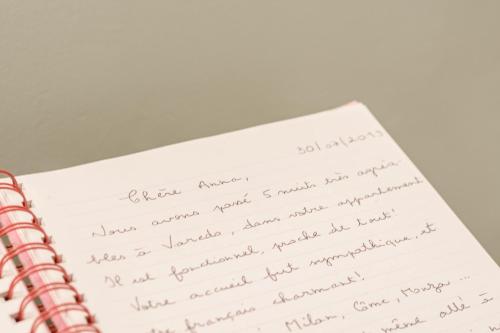 30/07/2019
Chère Anna,
Nous avons passé 5 nuits très agréa-
bles à Varedo, dans votre appartement
Il est fonctionnel, proche de tout!
Votre accueil fut sympathique, et
français charmant!
Milan, Côme, Monza ...
même allé à